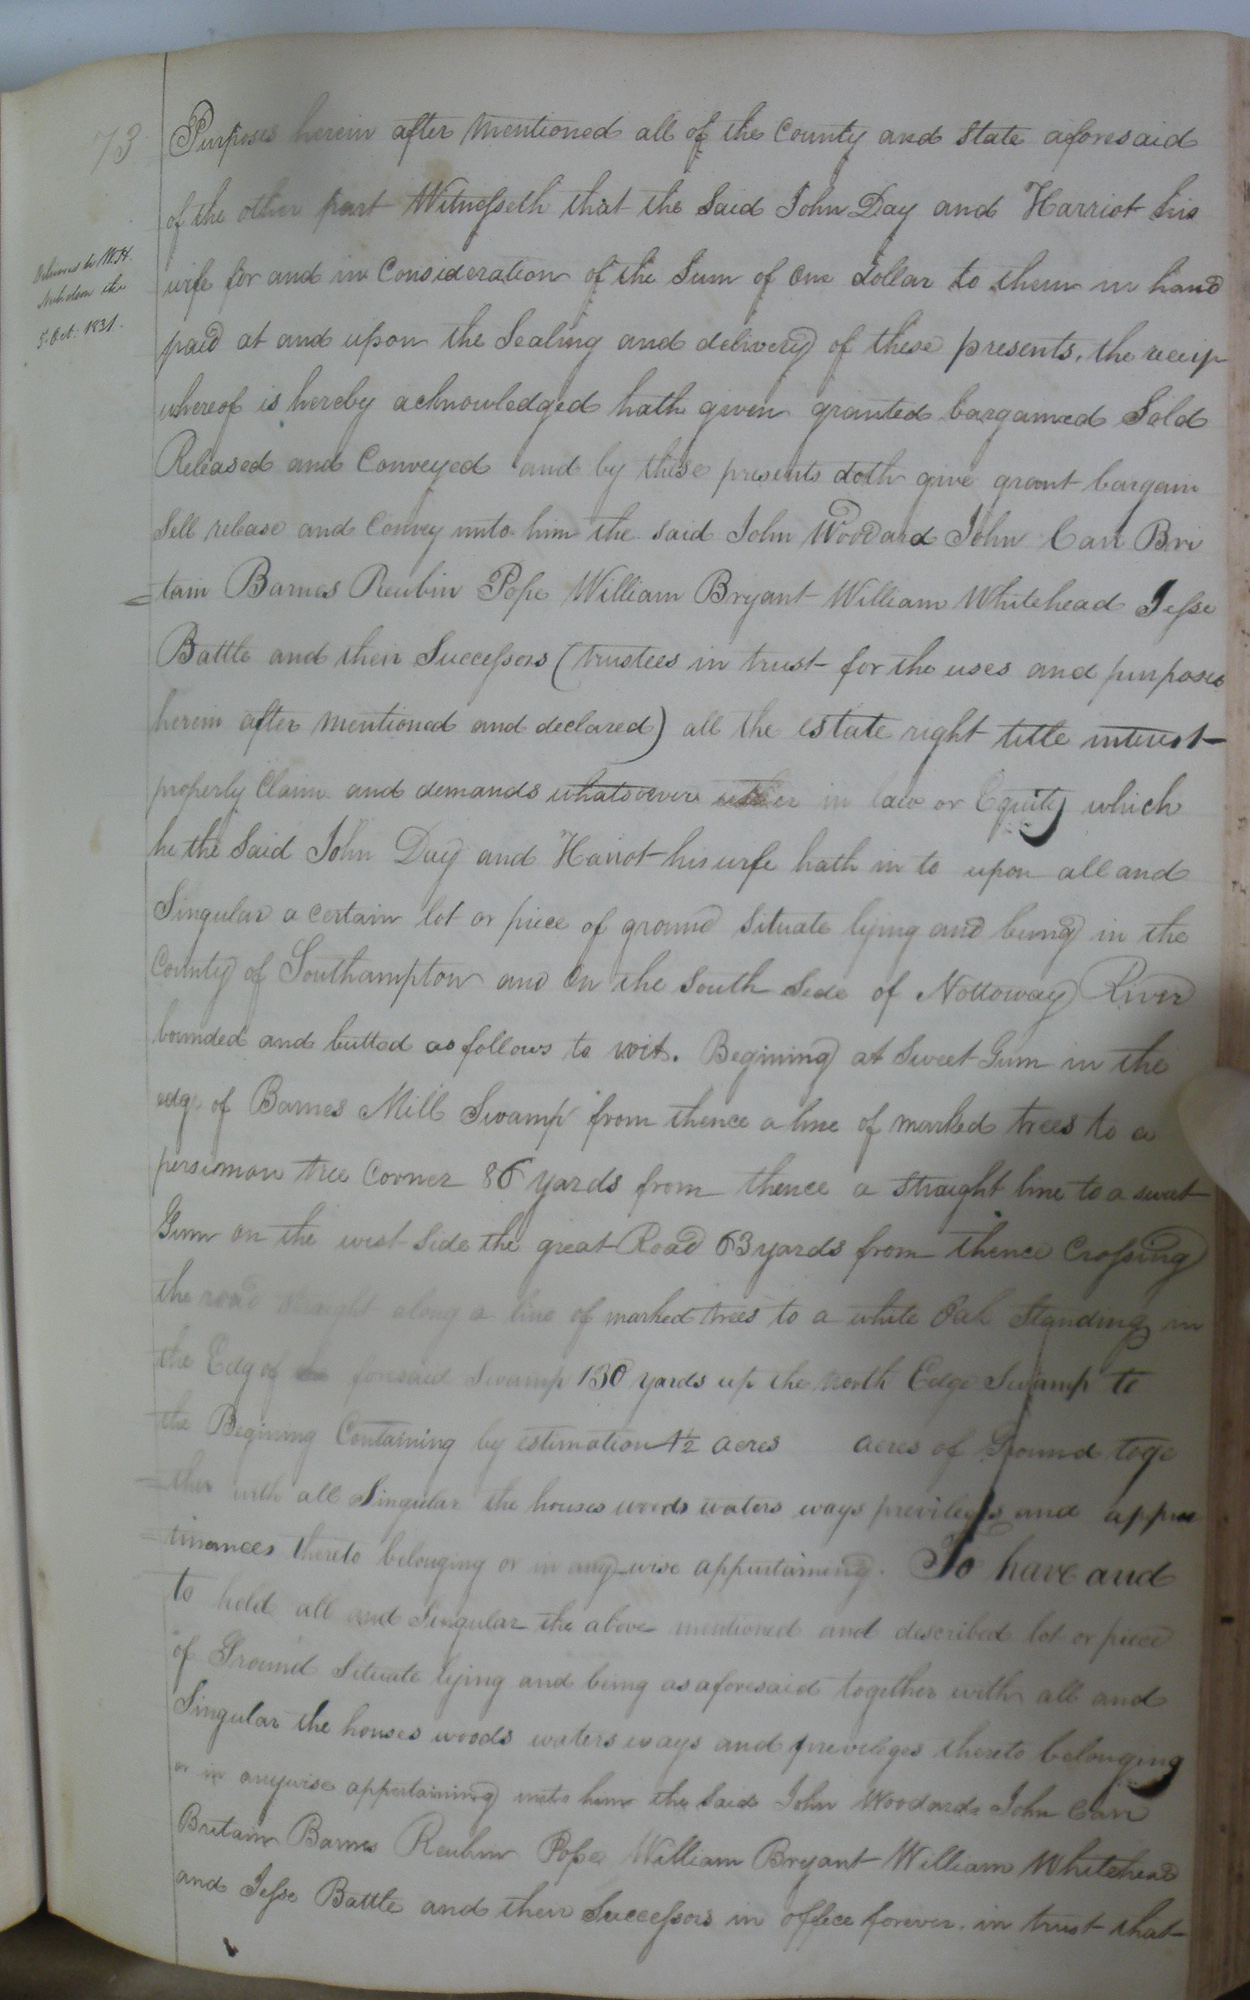 73
Delivered to W. H.
Nicholson the
5 Oct. 1831.
Purposes herein after mentioned all of the County and State aforesaid
of the other part Witnesseth that the Said John Day and Harriot his
wife for and in Consideration of the Sum of One Dollar to them in hand
paid at and upon the Sealing and delivery of these presents, the receip
whereof is hereby acknowledged hath given granted bargained Sold
Released and Conveyed and by these presents doth give grant bargain
Sell release and Convey unto him the said John Woodard John Carr Bri
=tain Barnes Reubin Pope William Bryant William Whitehead Jesse
Battle and their Successors (trustees in trust for the uses and purposes
herein after mentioned and declared) all the estate right title interest
property Claim and demands whatsoever either in law or Equity which
he the Said John Day and Harriot his wife hath in to upon all and
Singular a certain lot or piece of ground Situate lying and being in the
County of Southampton and On the South Side of Nottoway River
bounded and butted as follows to wit. Begining at Sweet Gum in the
edge of Barnes Mill Swamp from thence a line of marked trees to a
persimon tree Corner 86 yards from thence a straight line to a sweet
Gum on the west Side the great Road 63 yards from thence Crossing
the road straight along a line of marked trees to a white Oak Standing in
the Edg of the foresaid Swamp 130 yards up the North Edge Swamp to
the Begining Containing by estimation 1½ acres acres of Ground toge
=ther with all Singular the houses woods waters ways previleges and appur
=tinances thereto belonging or in any wise appurtaining. To have and
to hold all and Singular the above mentioned and described lot or piece
of Ground Situate lying and being as aforesaid together with all and
Singular the houses woods waters ways and previleges thereto belonging
or in anywise appertaining unto him the Said John Woodards John Carr
Britain Barnes Reubin Pope William Bryant William Whitehead
and Jesse Battle and their Successors in office forever. in trust that